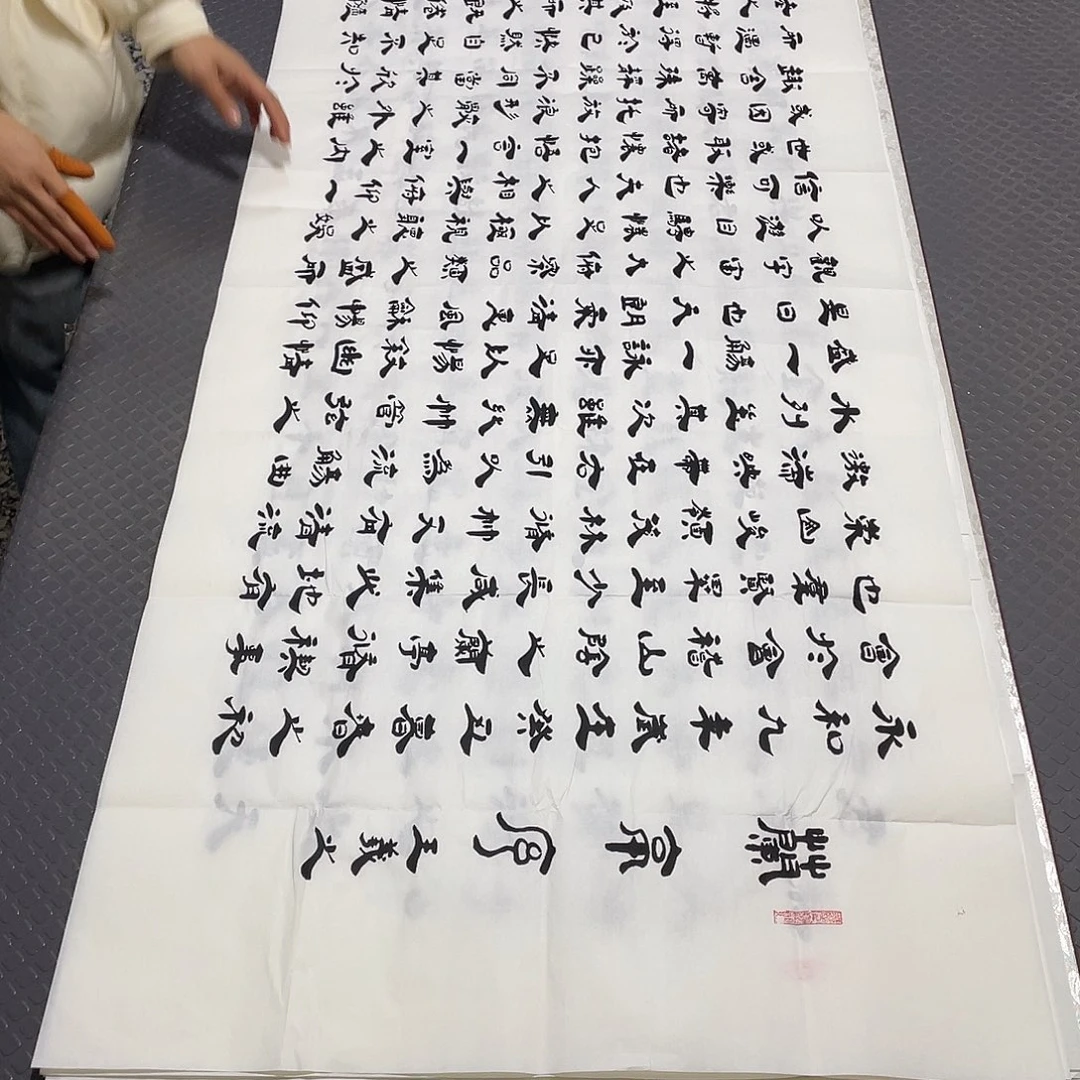 蘭亭序 王羲之
永和九年歲在癸丑暮春之初
會於會稽山陰之蘭亭脩禊事
也羣賢畢至少長咸集此地有
崇山峻領茂林脩竹又有清流
激湍映帶左右引以為流觴曲
水列坐其次雖無絲竹管弦之
盛一觴一詠亦足以暢敘幽情
是日也天朗氣清惠風龢暢仰
觀宇宙之大俯察品類之盛所
以遊目騁懷足以極視聽之娛
信可樂也夫人之相與俯仰一
世或取諸懷抱悟言一室之內
或因寄所託放浪形骸之外雖
趣舍萬殊靜躁不同當其欣於
所遇暫得於己快然自足不知
之將至其所之既倦情隨